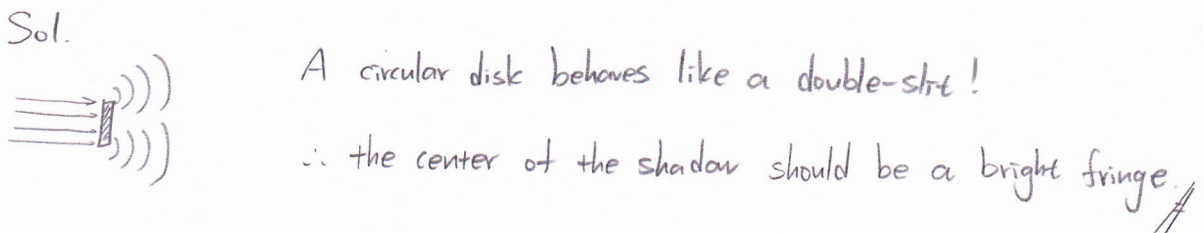 Sol.
A circular disk behaves like a double-slit !
∴ the center of the shadow should be a bright fringe.